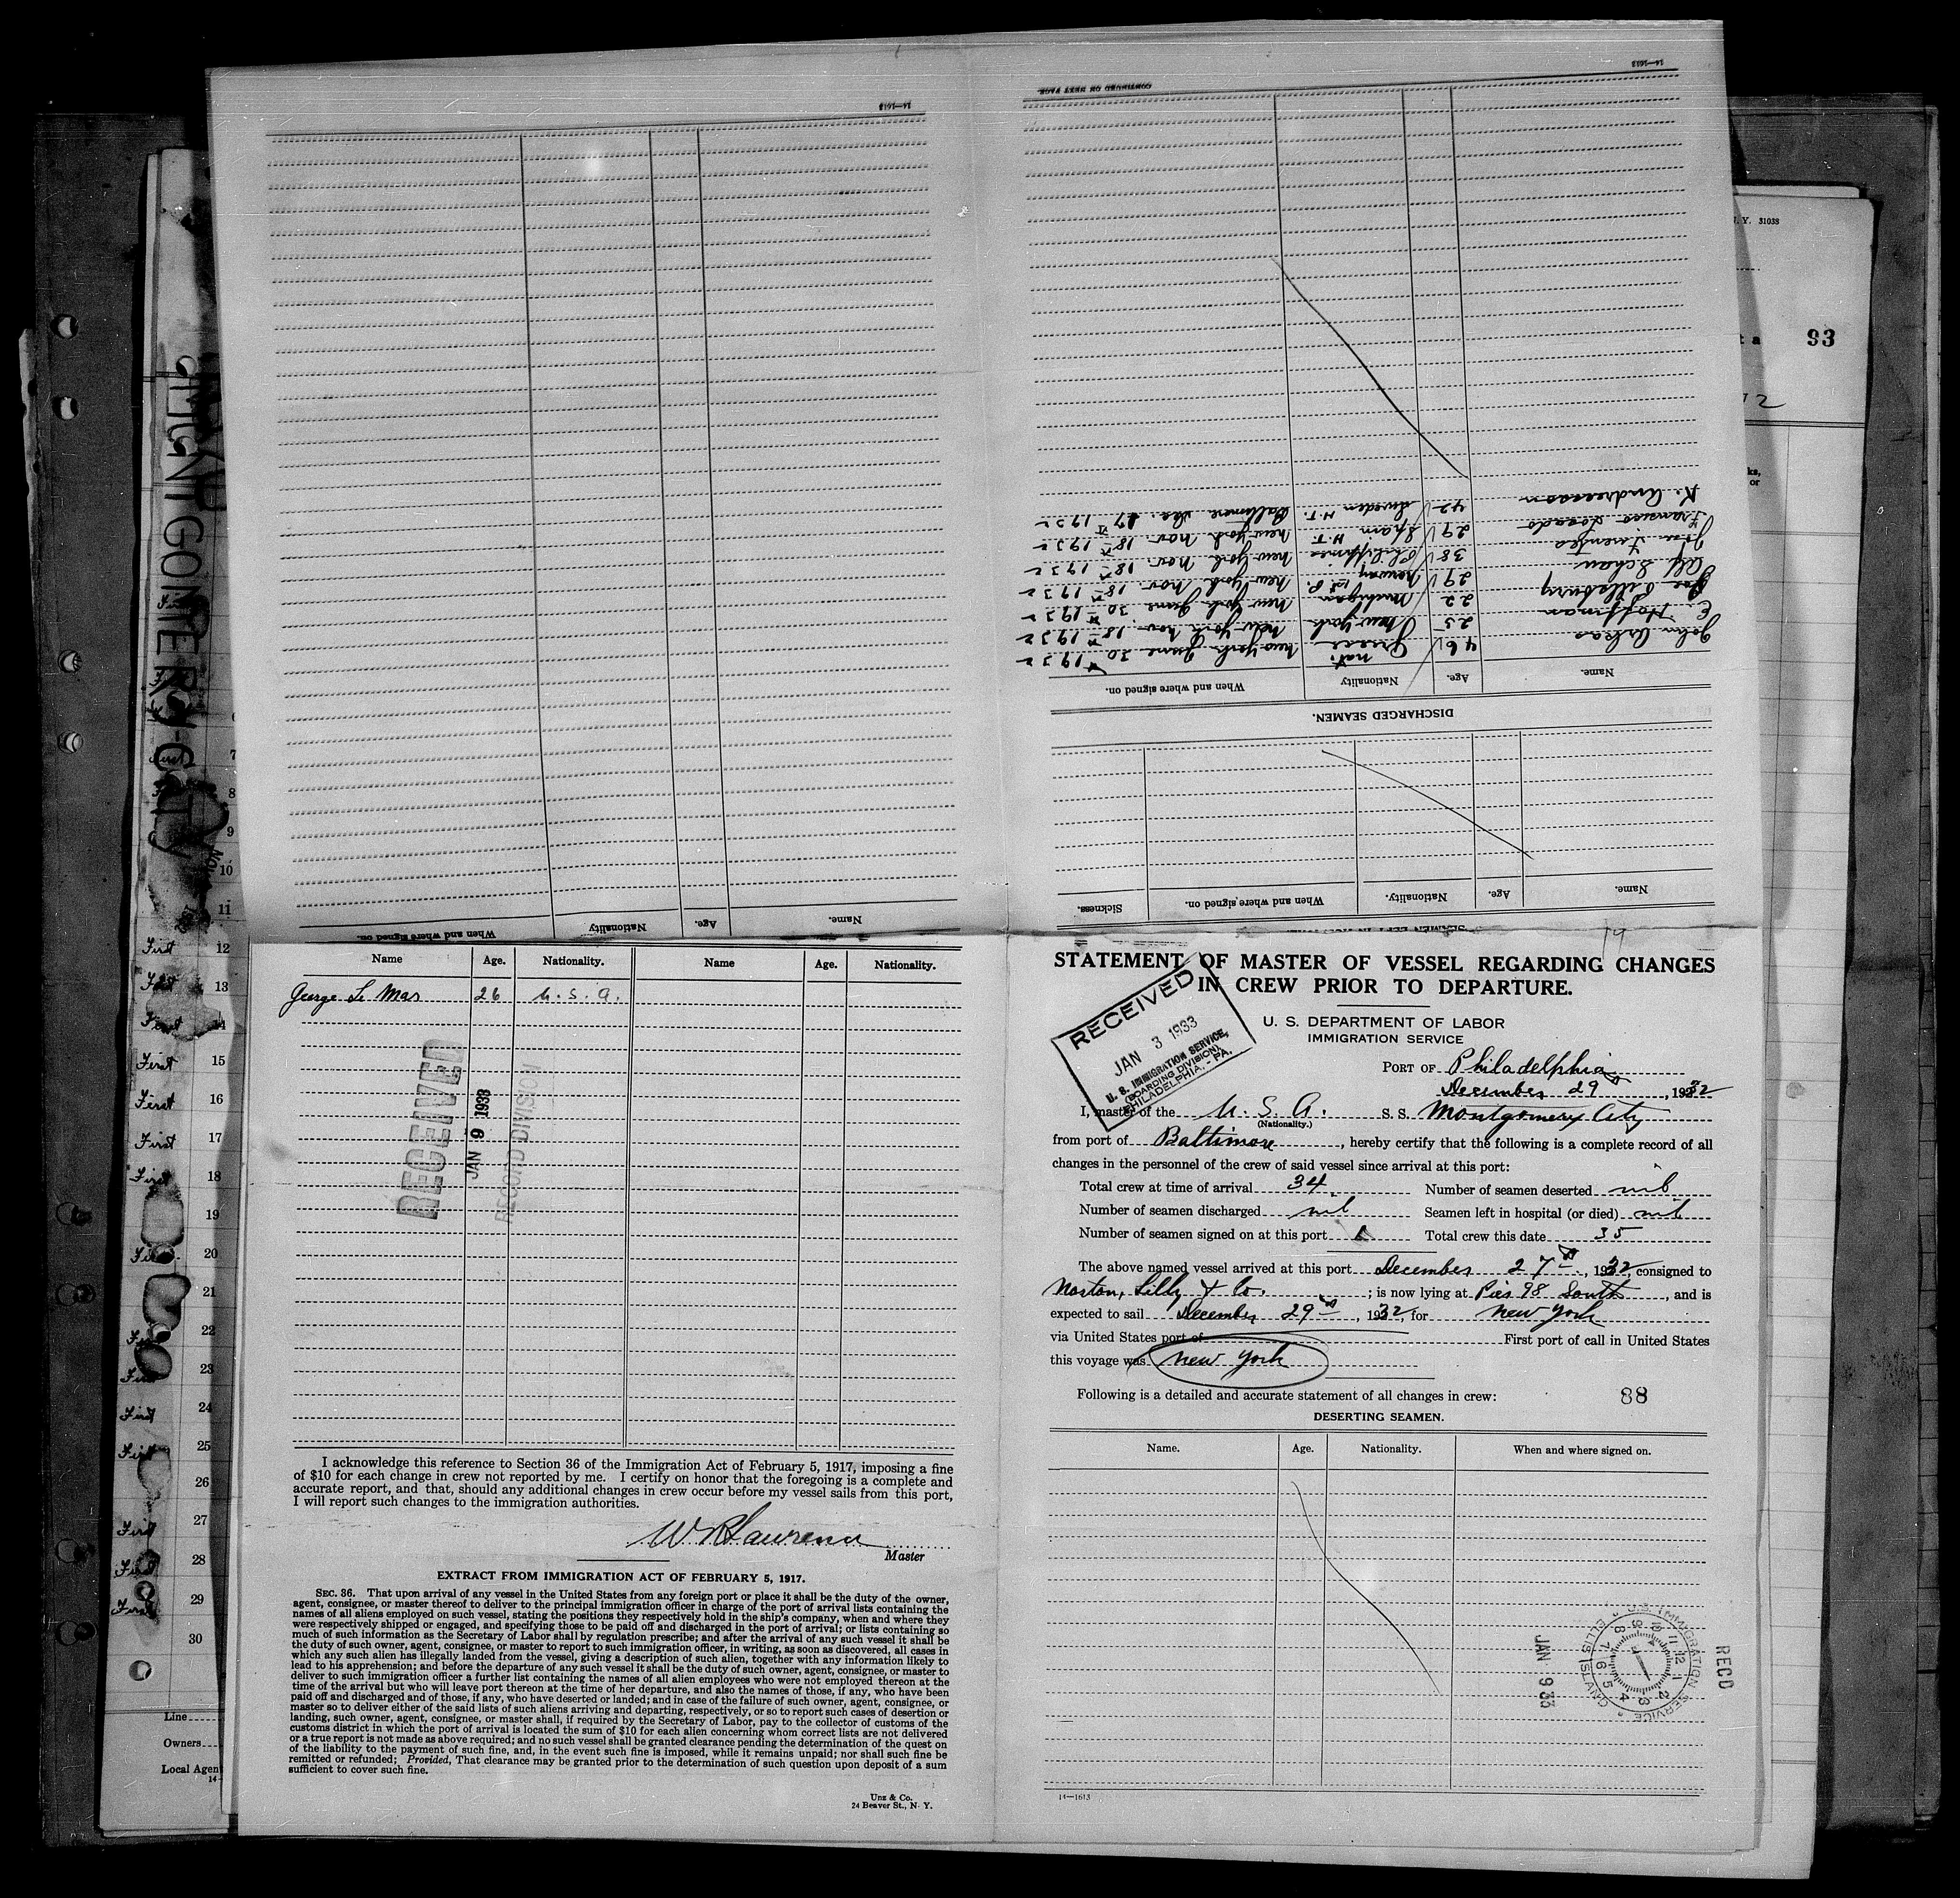 STATEMENT OF MASTER OF VESSEL REGARDING CHANGES
IN CREW PRIOR TO DEPARTURE.
U. S. DEPARTMENT OF LABOR
IMMIGRATION SERVICE
RECEIVED
JAN 3 1933
U. S. IMMIGRATION SERVICE,
(BOARDING DIVISION),
PHILADELPHIA, - PA.
PORT OF Philadelphia
December 29, 1932
I, master of the U. S. A. S. S. Montgomery City
(Nationality.)
from port of Baltimore, hereby certify that the following is a complete record of all
changes in the personnel of the crew of said vessel since arrival at this port:
Total crew at time of arrival 34 Number of seamen deserted nil
Number of seamen discharged nil Seamen left in hospital (or died) nil
Number of seamen signed on at this port Total crew this date 35
The above named vessel arrived at this port December 27th, 1932, consigned to
Norton, Lilly & Co. ; is now lying at Pier 98 South, and is
expected to sail December 29th, 1932, for New York
via United States port of First port of call in United States
this voyage was New York
Following is a detailed and accurate statement of all changes in crew: 88
DESERTING SEAMEN.
Name. Age. Nationality. When and where signed on.
JAN 9 33
RECD
U.S. IMMIGRATION SERVICE
ELLIS ISLAND
14—1613
Name. Age. Nationality. When and where signed on. Sickness.
DISCHARGED SEAMEN.
Name. Age. Nationality When and where signed on.
John Arkas 46 Greece nat. New York June 30 1932
E. Hoffman 25 New York New York Nov. 18 1932
Joe Pillsbury 22 Michigan New York June 30 1932
Alf Schau 29 Norway 1st P. New York Nov. 18 1932
Jose Fuentes 38 Philippines New York Nov. 18 1932
Francisco Losado 29 Spain H.T. New York Nov. 18 1932
K. Andreasson 42 Sweden H.T. Baltimore Dec. 27 1932
CONTINUED ON NEXT PAGE.
14—1613
Name. Age. Nationality When and where signed on.
14—1613
Name Age. Nationality. Name Age. Nationality.
George Le Mar 26 U. S. A.
RECEIVED
JAN 9 1933
RECORD DIVISION
I acknowledge this reference to Section 36 of the Immigration Act of February 5, 1917, imposing a fine
of $10 for each change in crew not reported by me. I certify on honor that the foregoing is a complete and
accurate report, and that, should any additional changes in crew occur before my vessel sails from this port,
I will report such changes to the immigration authorities.
Master
EXTRACT FROM IMMIGRATION ACT OF FEBRUARY 5, 1917.
SEC. 36. That upon arrival of any vessel in the United States from any foreign port or place it shall be the duty of the owner,
agent, consignee, or master thereof to deliver to the principal immigration officer in charge of the port of arrival lists containing the
names of all aliens employed on such vessel, stating the positions they respectively hold in the ship's company, when and where they
were respectively shipped or engaged, and specifying those to be paid off and discharged in the port of arrival; or lists containing so
much of such information as the Secretary of Labor shall by regulation prescribe; and after the arrival of any such vessel it shall be
the duty of such owner, agent, consignee, or master to report to such immigration officer, in writing, as soon as discovered, all cases in
which any such alien has illegally landed from the vessel, giving a description of such alien, together with any information likely to
lead to his apprehension; and before the departure of any such vessel it shall be the duty of such owner, agent, consignee, or master to
deliver to such immigration officer a further list containing the names of all alien employees who were not employed thereon at the
time of the arrival but who will leave port thereon at the time of her departure, and also the names of those, if any, who have been
paid off and discharged and of those, if any, who have deserted or landed; and in case of the failure of such owner, agent, consignee, or
master so to deliver either of the said lists of such aliens arriving and departing, respectively, or so to report such cases of desertion or
landing, such owner, agent, consignee, or master shall, if required by the Secretary of Labor, pay to the collector of customs of the
customs district in which the port of arrival is located the sum of $10 for each alien concerning whom correct lists are not delivered
or a true report is not made as above required; and no such vessel shall be granted clearance pending the determination of the quest on
of the liability to the payment of such fine, and, in the event such fine is imposed, while it remains unpaid; nor shall such fine be
remitted or refunded; Provided, That clearance may be granted prior to the determination of such question upon deposit of a sum
sufficient to cover such fine.
Unz & Co.
24 Beaver St., N. Y.
N. Y. 31038
93
Line
Owners
Local Agen